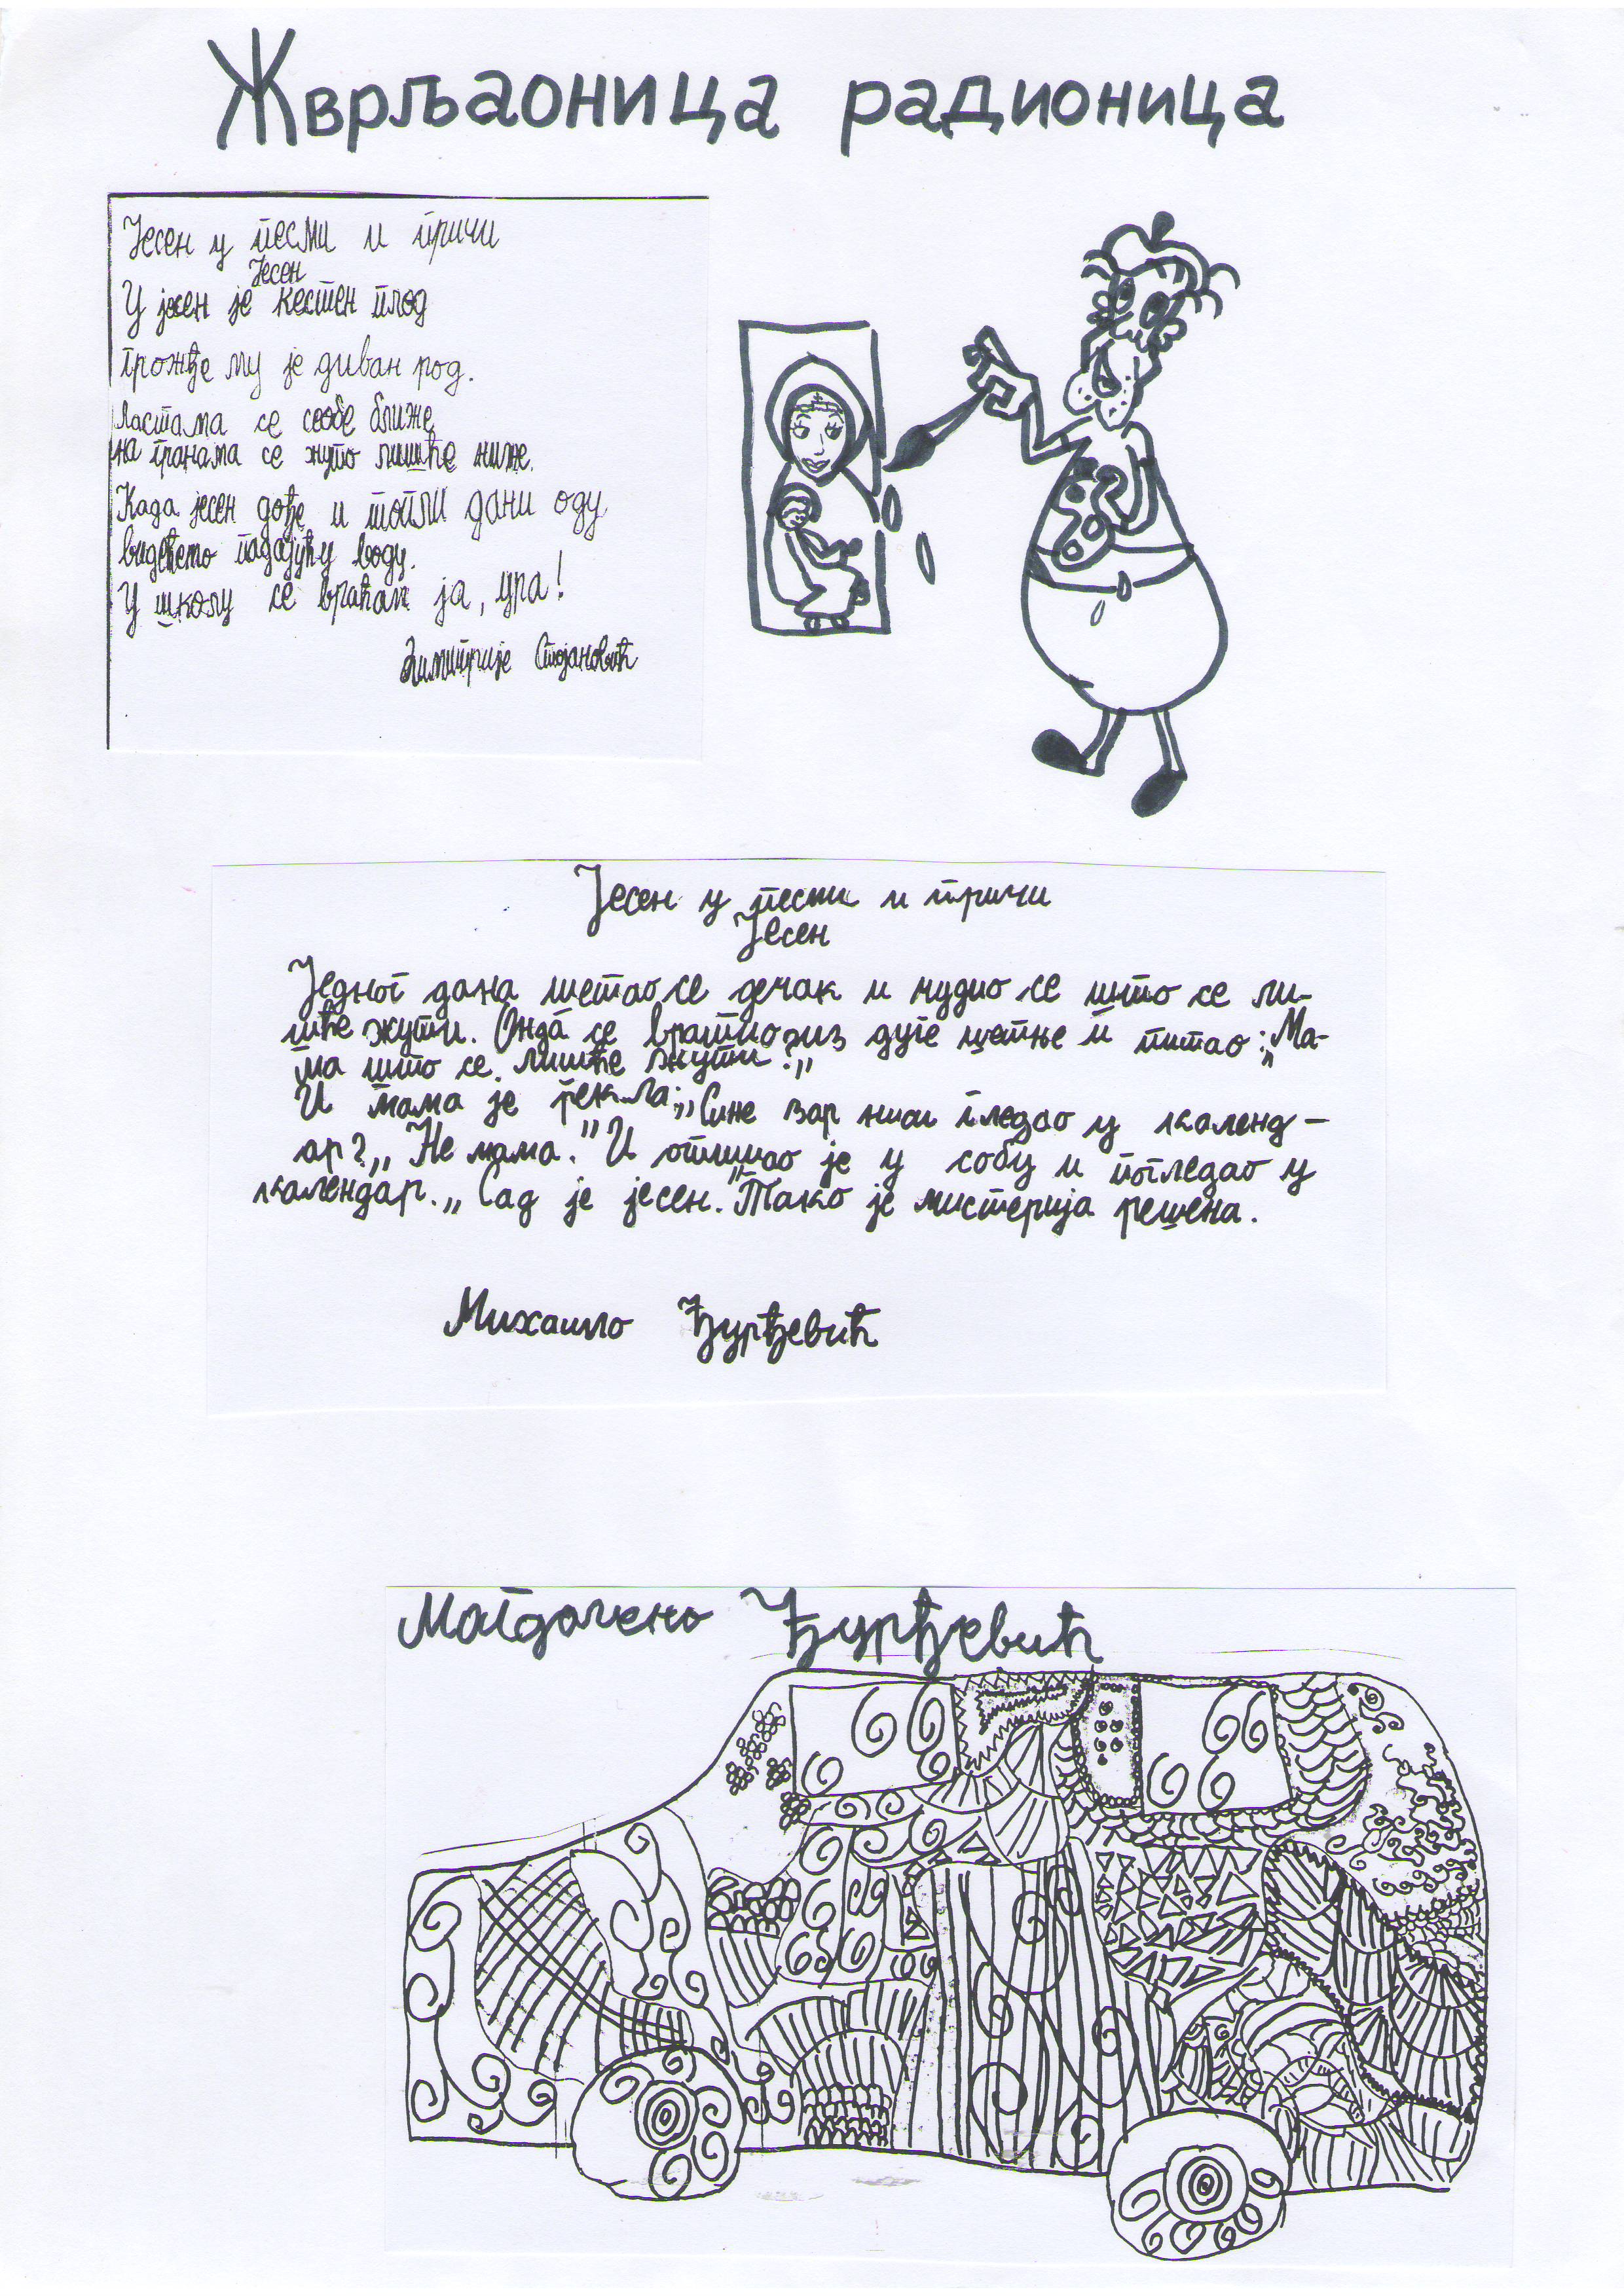 Жврљаоница радионица
Јесен у песми и причи
Јесен
У јесен је кестен плод
грожђе му је диван род.
Ластама се сеобе ближе
на гранама се жуто лишће ниже.
Када јесен дође и топли дани оду
видећемо падајућу воду.
У школу се враћам ја, ура!
Димитрије Стојановић
Јесен у песми и причи
Јесен
Једног дана шетао се дечак и чудио се што се ли-
шће жути. Онда се вратио из дуге шетње и питао: „Ма-
ма што се лишће жути?„
И мама је рекла: „Сине зар ниси гледао у календ-
ар?„ Не мама." И отишао је у собу и погледао у
календар. „Сад је јесен." Тако је мистерија решена.
Михаило Ђурђевић
Магдалена Ђурђевић